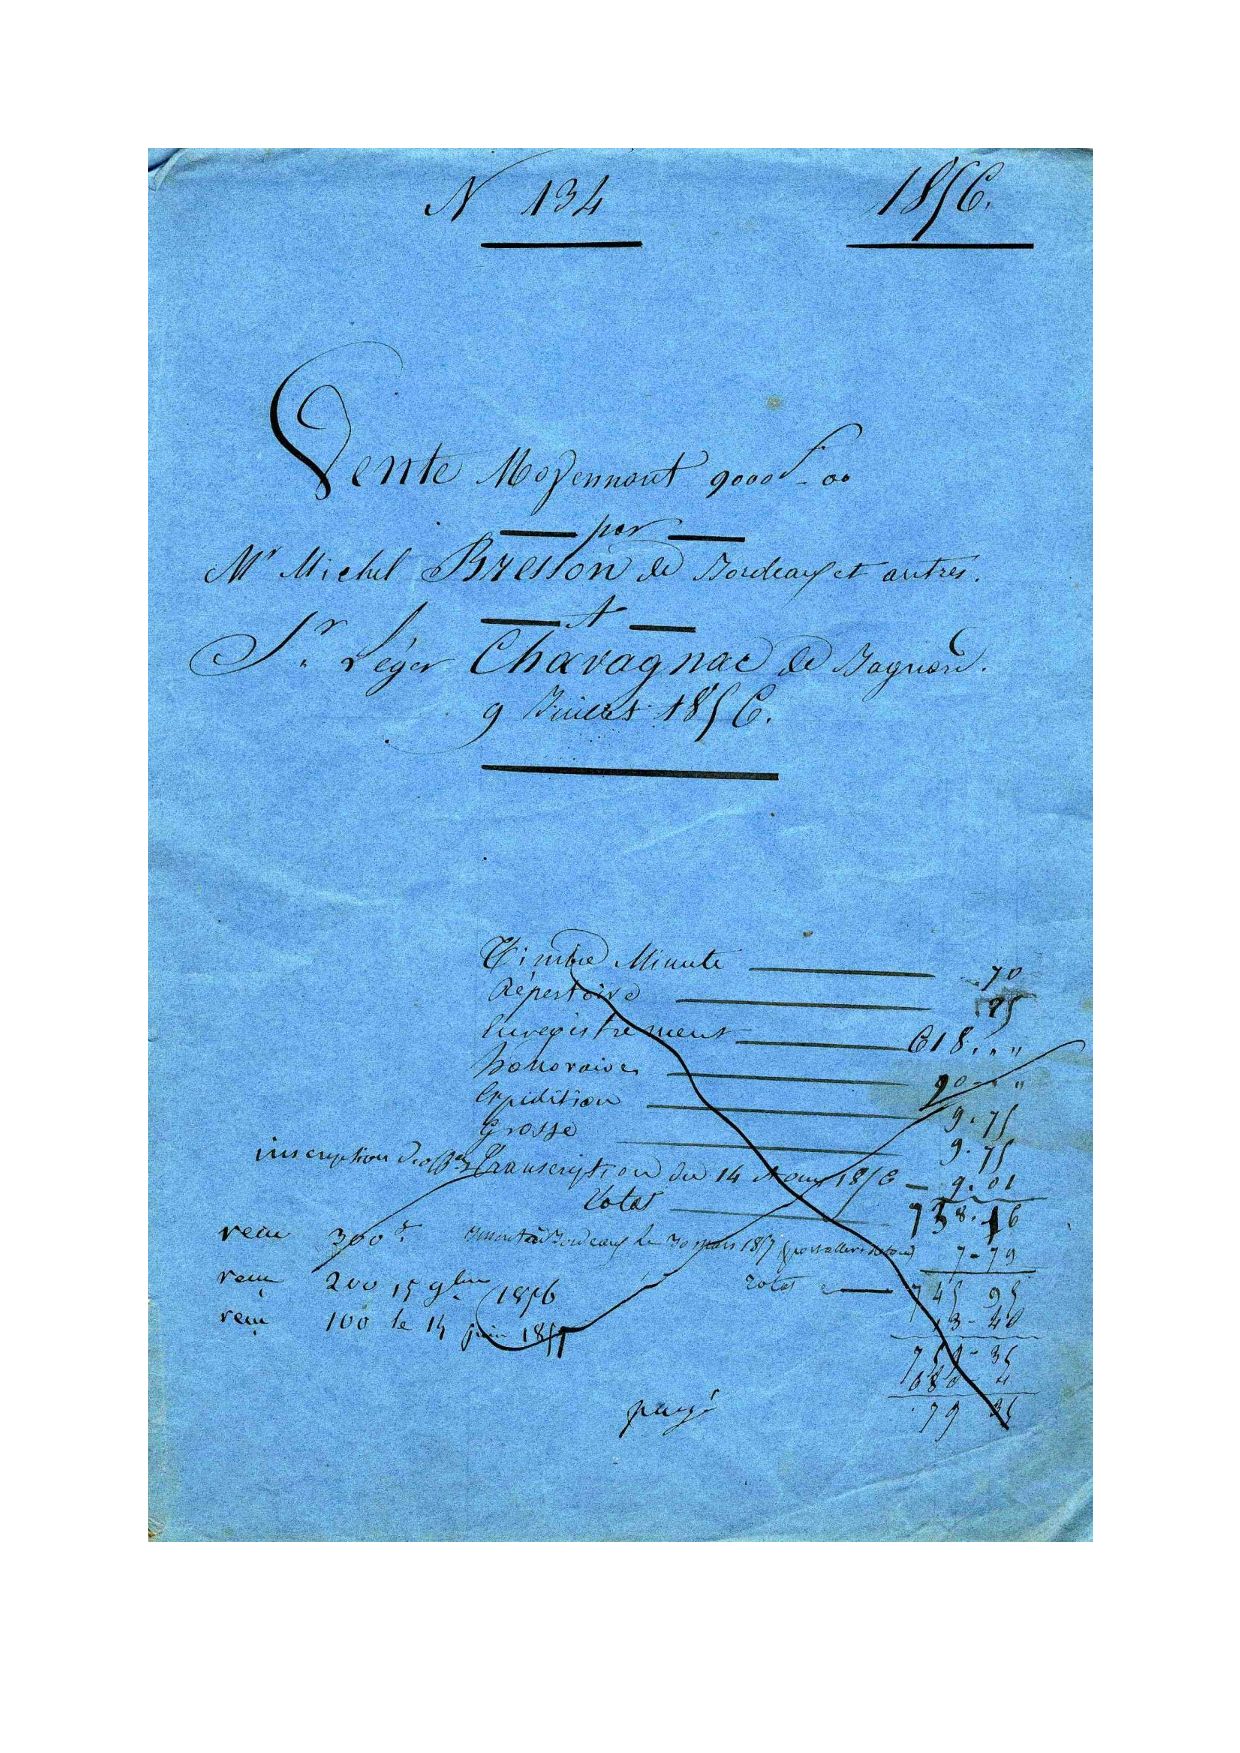 N 134 1856.
Vente Moyennant 9000f_00
par
Mr Michel Bresson de Bordeaux et autres.
A
Sr Léger Chavagnac de
9 Juillet 1856.
Timbre Minute 70
Répertoire 25
Enregistrement 618. " "
honoraires 90 "
Expédition 9.75
Grosse 9.75
inscription Transcription du 14 Aout 1856 9.01
Total 738.16
Bordeaux le 30 mars 1857 7-79
reçu 300f
reçu 200 15 9bre 1856
Total 745 95
reçu 100 le 14 juin 1857
13-40
35
79 35
payé